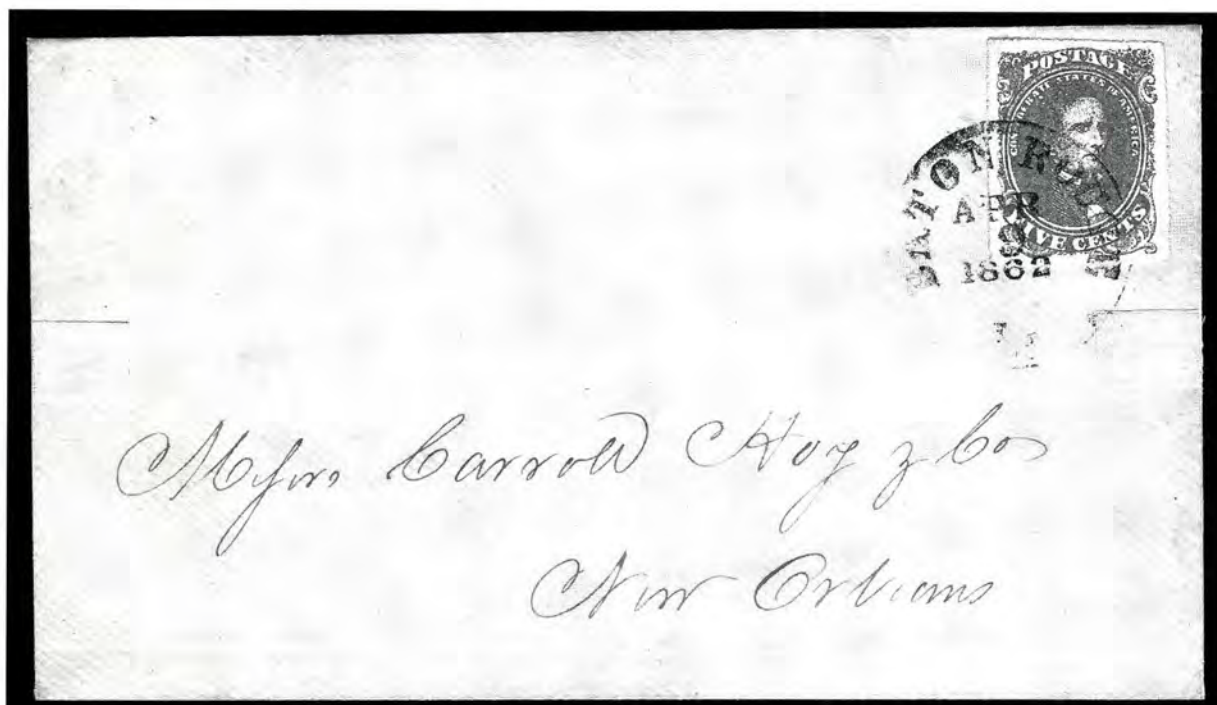 POSTAGE
CONFEDERATE STATES OF AMERICA
FIVE CENTS
BATON ROUGE
APR
9
1862
Carroll Hoy & Co
New Orleans